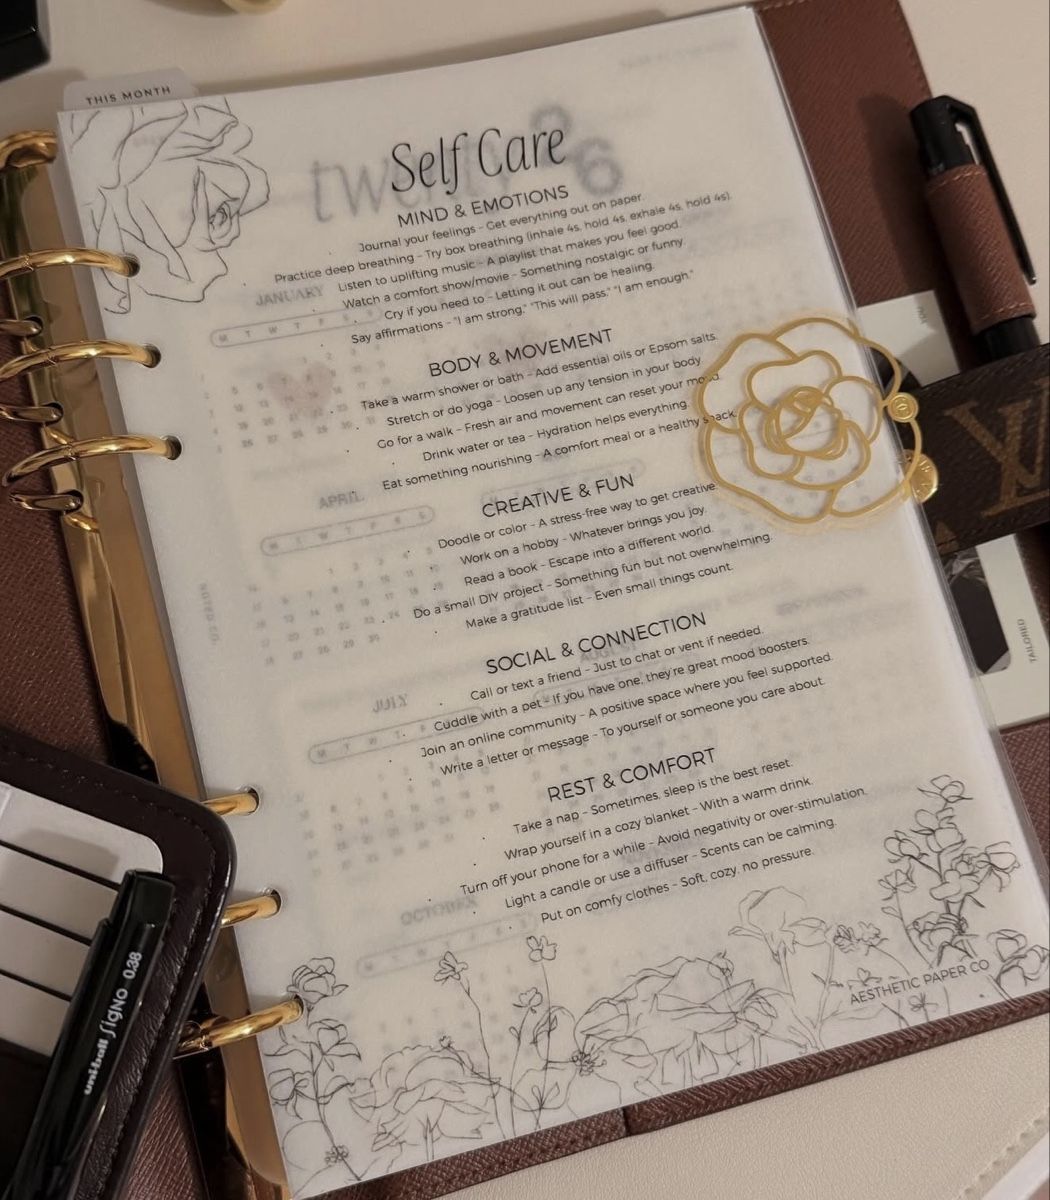 THIS MONTH
Self Care
MIND & EMOTIONS
Journal your feelings - Get everything out on paper.
Practice deep breathing - Try box breathing (inhale 4s, hold 4s, exhale 4s, hold 4s).
Listen to uplifting music - A playlist that makes you feel good.
Watch a comfort show/movie - Something nostalgic or funny.
Cry if you need to - Letting it out can be healing.
Say affirmations - "I am strong." "This will pass." "I am enough."
JANUARY
M T W T F S S
BODY & MOVEMENT
Take a warm shower or bath - Add essential oils or Epsom salts.
Stretch or do yoga - Loosen up any tension in your body
Go for a walk - Fresh air and movement can reset your mood.
Drink water or tea - Hydration helps everything.
Eat something nourishing - A comfort meal or a healthy snack.
APRIL
M T W T F S S
CREATIVE & FUN
Doodle or color - A stress-free way to get creative
Work on a hobby - Whatever brings you joy.
Read a book - Escape into a different world.
Do a small DIY project - Something fun but not overwhelming.
Make a gratitude list - Even small things count.
SOCIAL & CONNECTION
Call or text a friend - Just to chat or vent if needed.
Cuddle with a pet - If you have one, they're great mood boosters.
Join an online community - A positive space where you feel supported.
Write a letter or message - To yourself or someone you care about.
AUGUST
JULY
M T W T
REST & COMFORT
Take a nap - Sometimes, sleep is the best reset.
Wrap yourself in a cozy blanket - With a warm drink.
Turn off your phone for a while - Avoid negativity or over-stimulation.
Light a candle or use a diffuser - Scents can be calming.
Put on comfy clothes - Soft, cozy, no pressure.
OCTOBER
AESTHETIC PAPER CO
LV
TAILORED
uni-ball SigNO 0.38